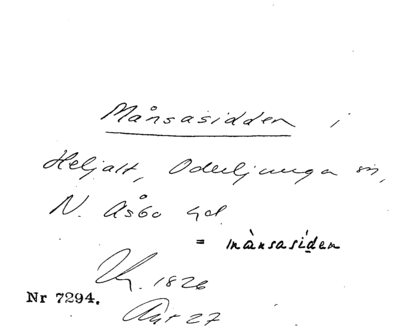 Månsasidden i
Heljalt, Oderljunga sn,
N. Åsbo hd
= mànsasiden
1826
Nr 7294.
27